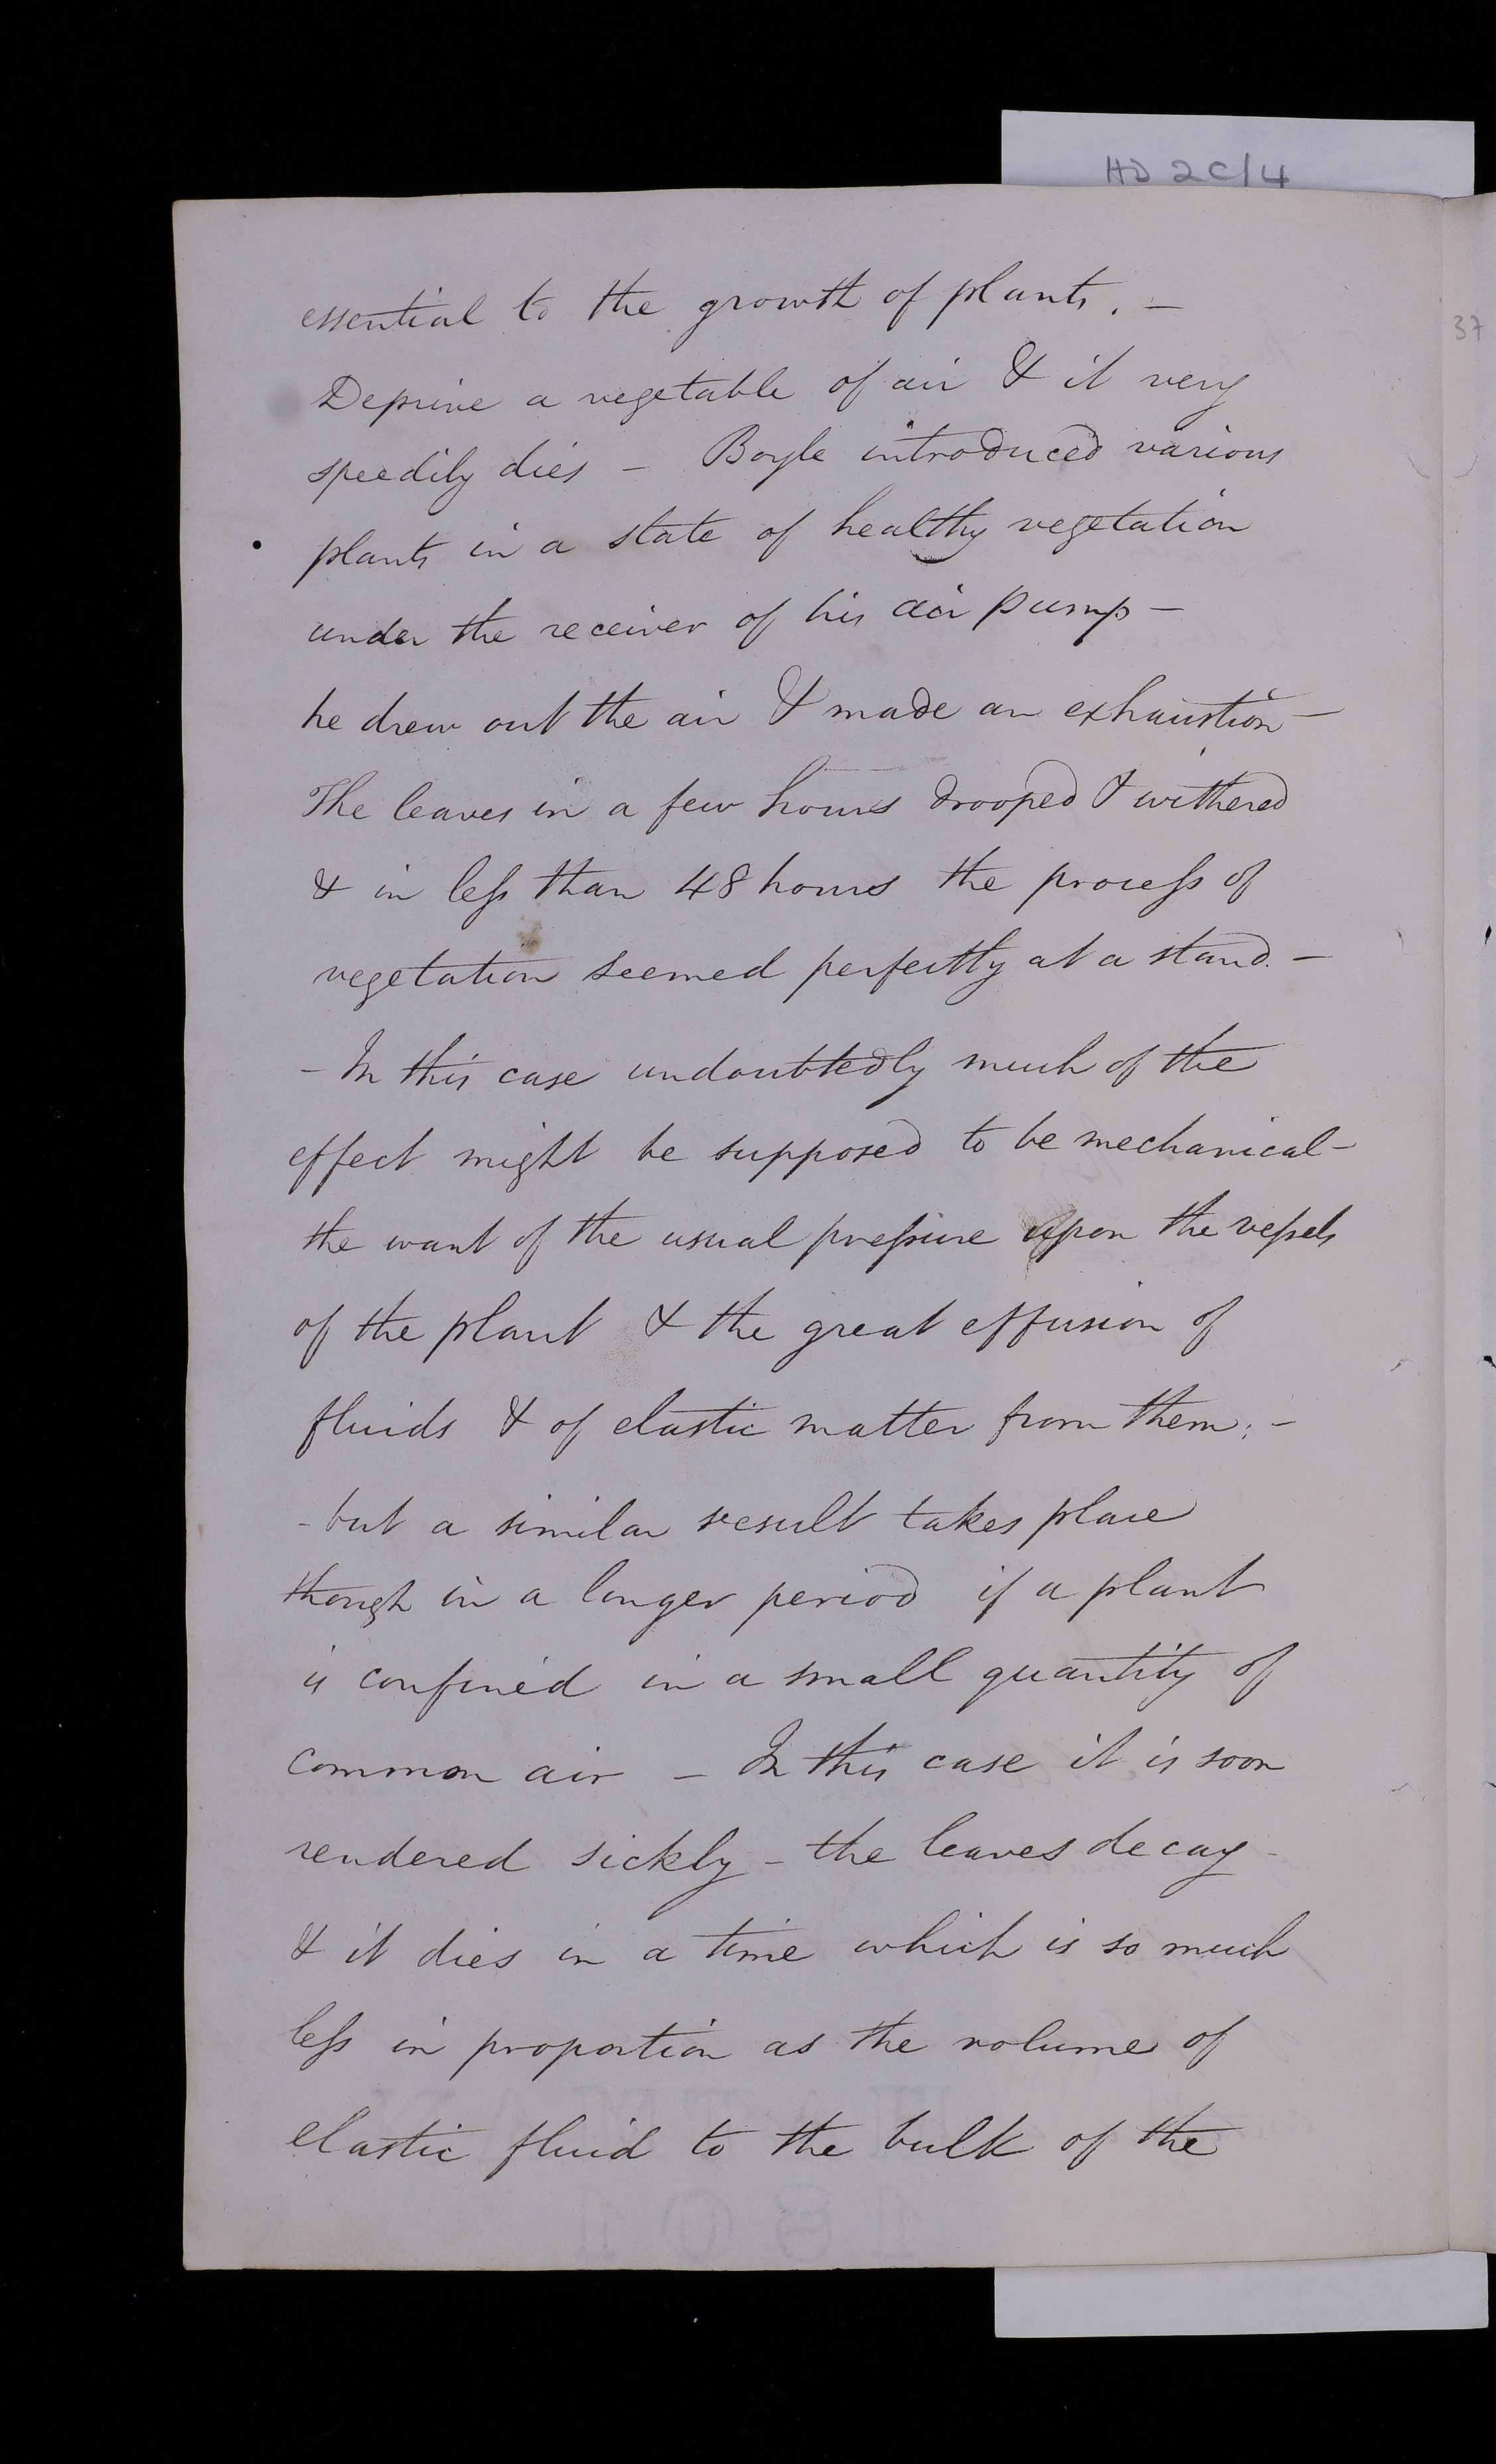 HD 2C/4
essential to the growth of plants. —
37
Deprive a vegetable of air & it very
speedily dies — Boyle introduced various
plants in a state of healthy vegetation
under the receiver of his air pump —
he drew out the air & made an exhaustion —
The leaves in a few hours drooped & withered
& in less than 48 hours the process of
vegetation seemed perfectly at a stand. —
– In this case undoubtedly much of the
effect might be supposed to be mechanical –
the want of the usual pressure upon the vessels
of the plant & the great effusion of
fluids & of elastic matter from them; –
– but a similar result takes place
though in a longer period if a plant
is confined in a small quantity of
common air – In this case it is soon
rendered sickly – the leaves decay –
& it dies in a time which is so much
less in proportion as the volume of
elastic fluid to the bulk of the
1801